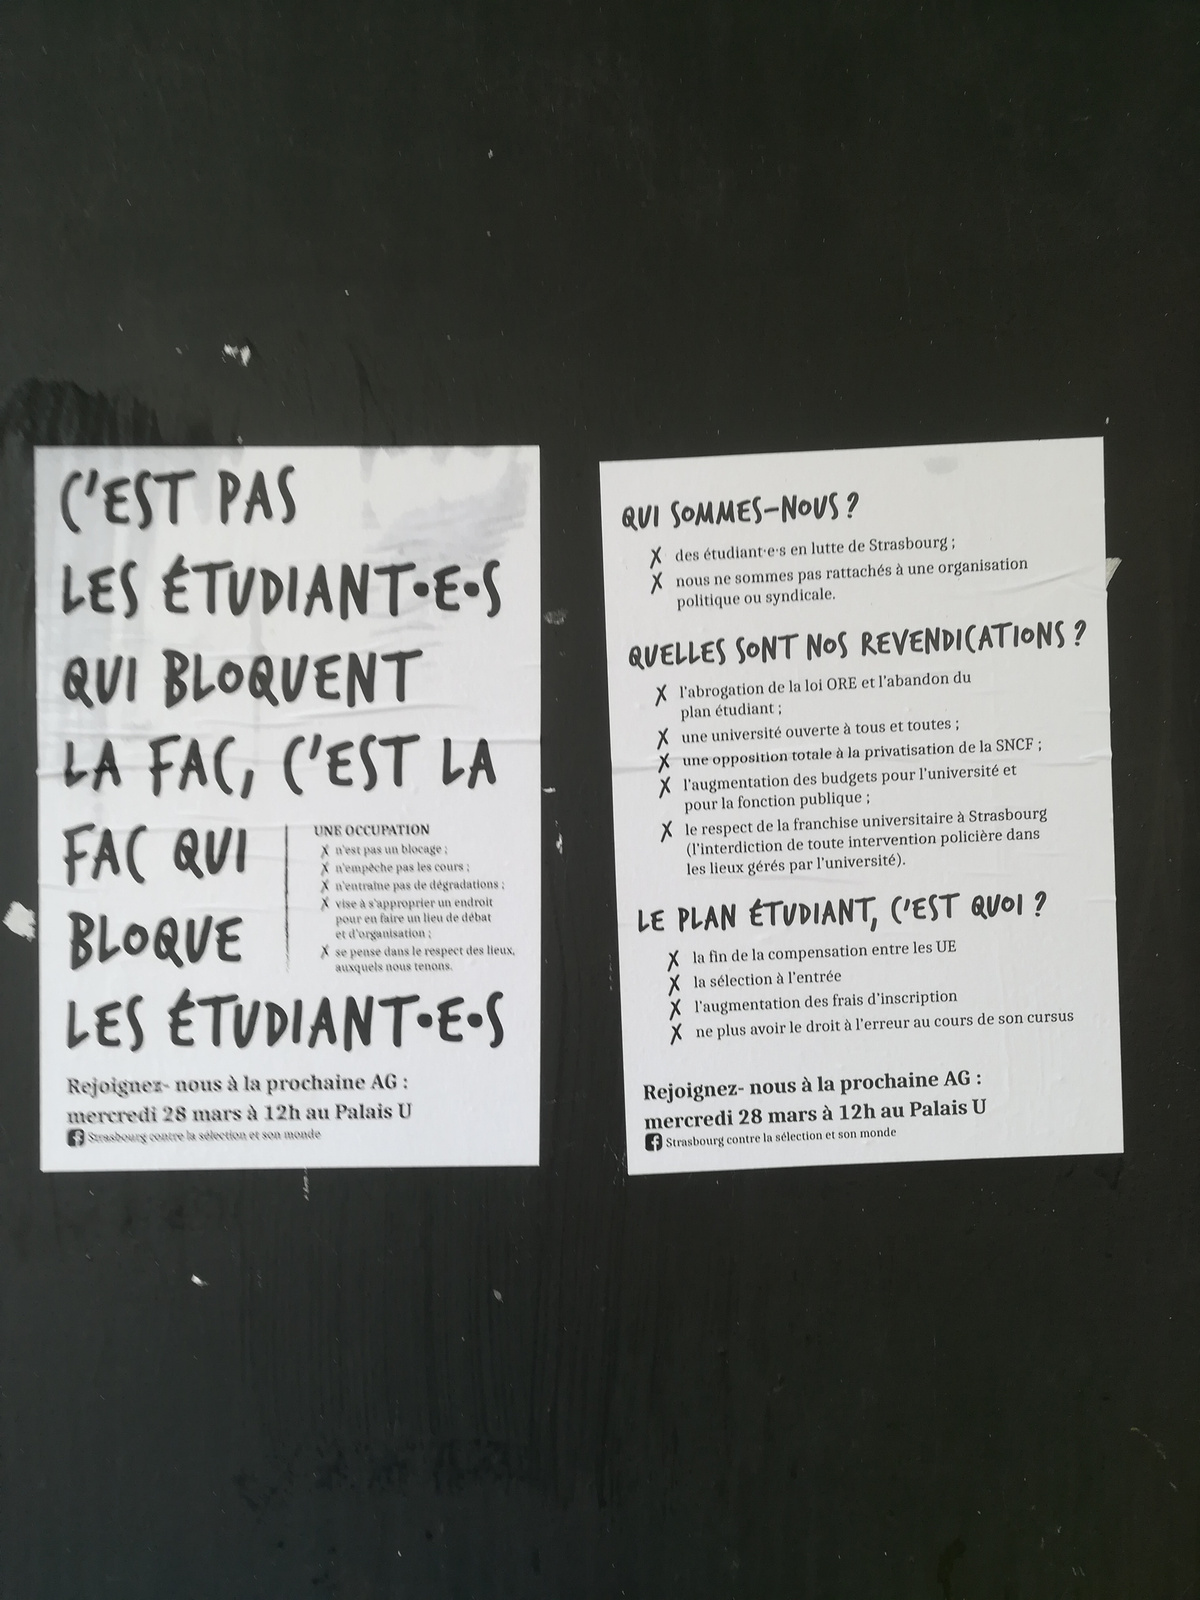 C'EST PAS
LES ÉTUDIANT•E•S
QUI BLOQUENT
LA FAC, C'EST LA
FAC QUI
BLOQUE
UNE OCCUPATION
✗ n'est pas un blocage ;
✗ n'empêche pas les cours ;
✗ n'entraîne pas de dégradations ;
✗ vise à s'approprier un endroit
pour en faire un lieu de débat
et d'organisation ;
✗ se pense dans le respect des lieux,
auxquels nous tenons.
LES ÉTUDIANT•E•S
Rejoignez- nous à la prochaine AG :
mercredi 28 mars à 12h au Palais U
Strasbourg contre la sélection et son monde
QUI SOMMES-NOUS ?
✗ des étudiant·e·s en lutte de Strasbourg ;
✗ nous ne sommes pas rattachés à une organisation
politique ou syndicale.
QUELLES SONT NOS REVENDICATIONS ?
✗ l'abrogation de la loi ORE et l'abandon du
plan étudiant ;
✗ une université ouverte à tous et toutes ;
✗ une opposition totale à la privatisation de la SNCF ;
✗ l'augmentation des budgets pour l'université et
pour la fonction publique ;
✗ le respect de la franchise universitaire à Strasbourg
(l'interdiction de toute intervention policière dans
les lieux gérés par l'université).
LE PLAN ÉTUDIANT, C'EST QUOI ?
✗ la fin de la compensation entre les UE
✗ la sélection à l'entrée
✗ l'augmentation des frais d'inscription
✗ ne plus avoir le droit à l'erreur au cours de son cursus
Rejoignez- nous à la prochaine AG :
mercredi 28 mars à 12h au Palais U
Strasbourg contre la sélection et son monde